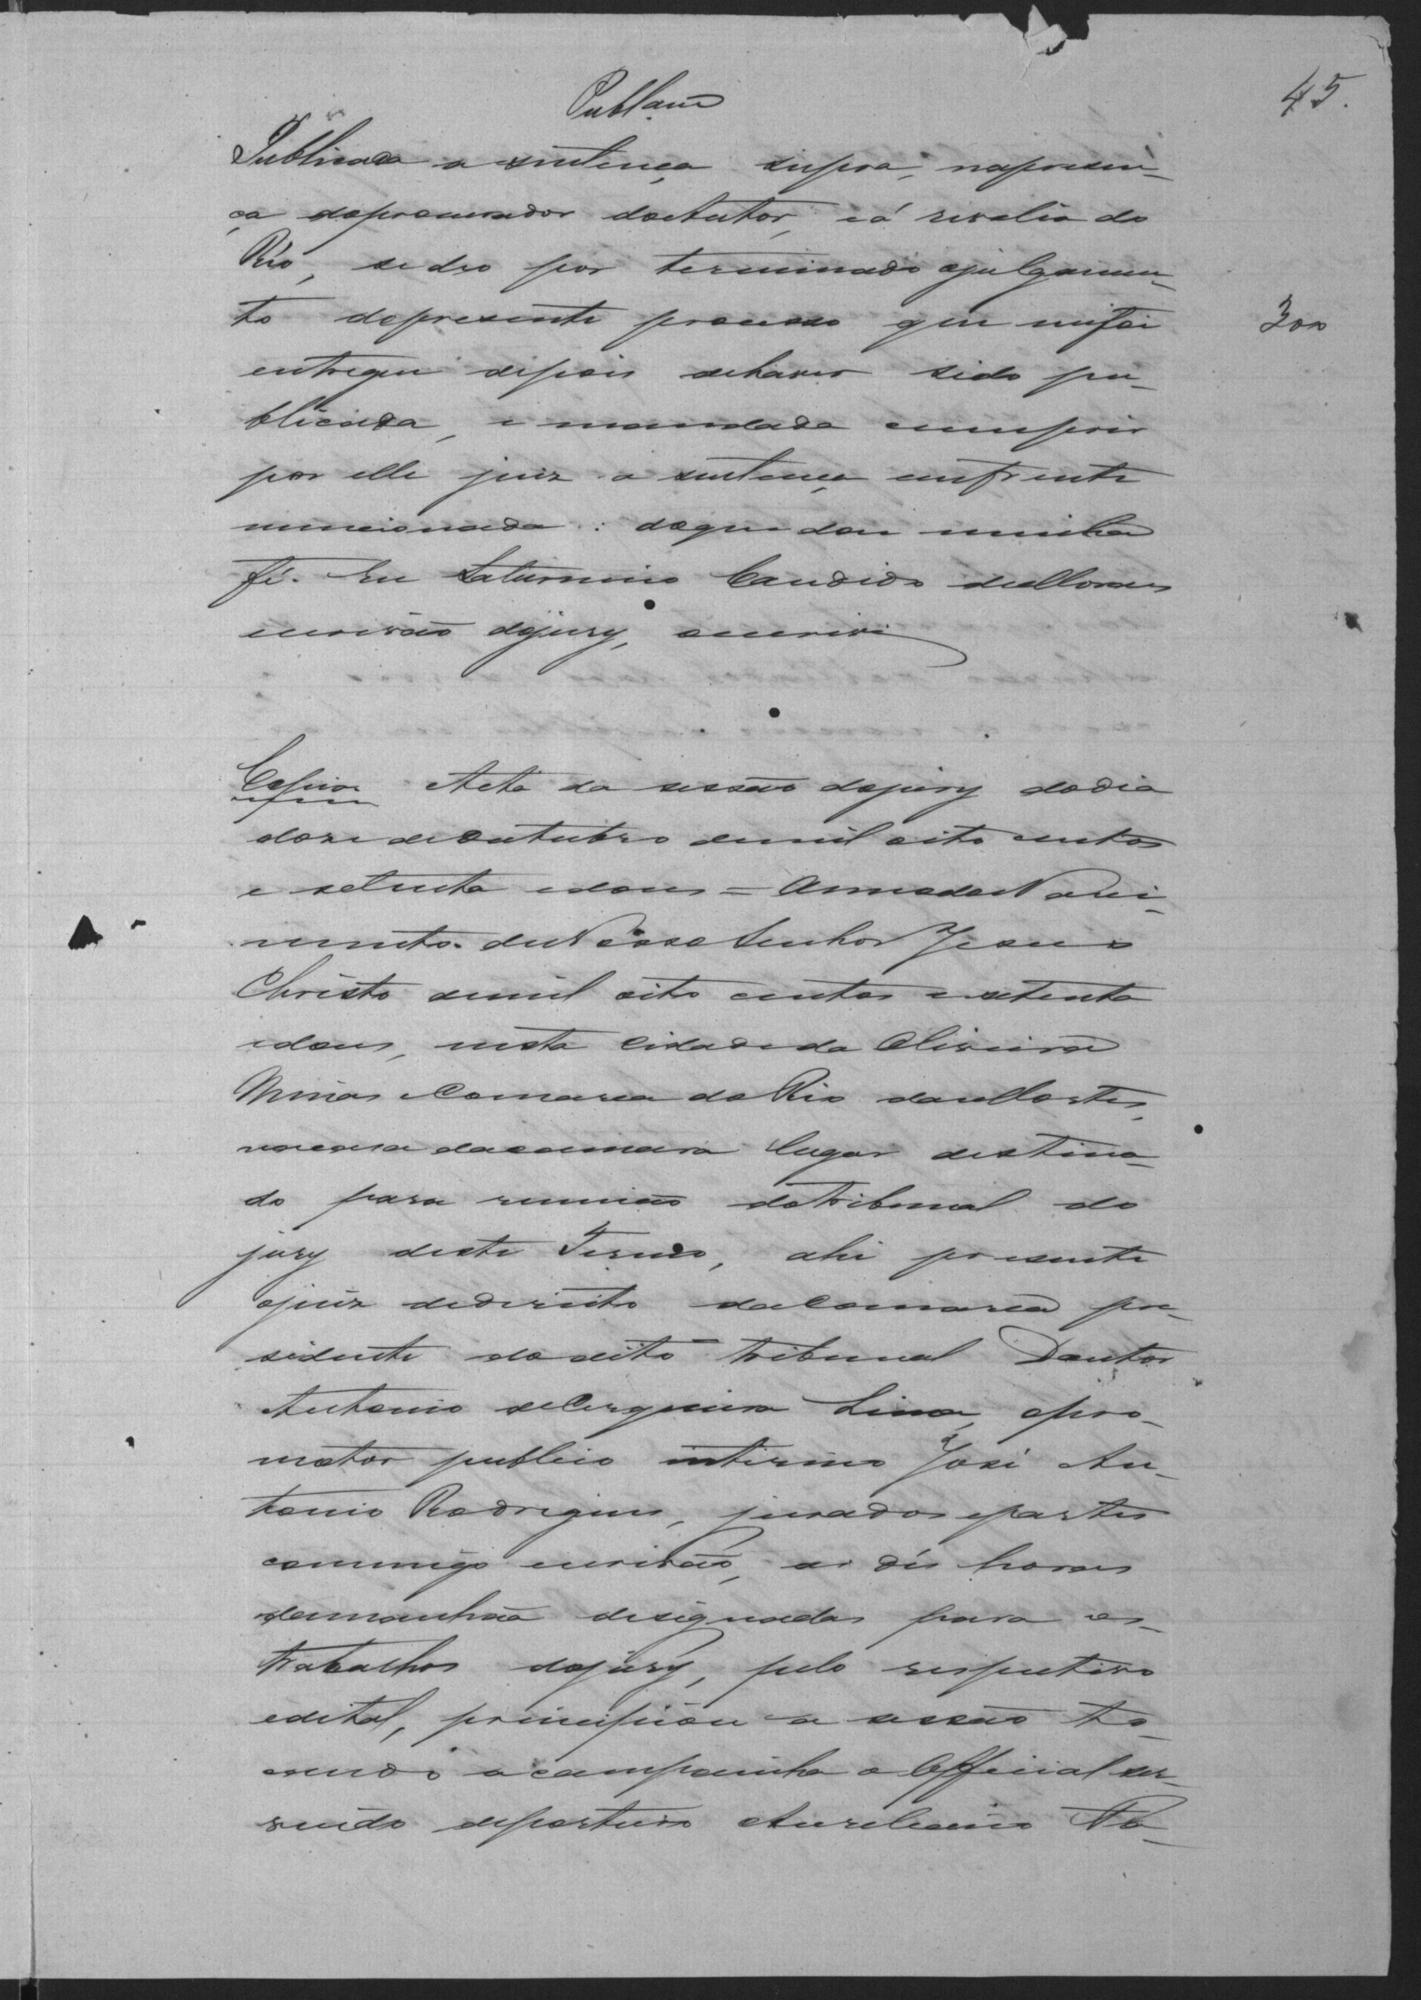 45.
Publam
Publicada a sentença supra, napresen-
ça doprocurador doctutor, eá revelia do
Réo, sedeo por terminado ojulgamen-
to dopresente processo que mefoi
300
entregue depois dehaver sido pu-
blicada, e mandada cumprir
por elle juiz a sentença emfrente
mencionada: doque dou minha
fé. Eu Saturnino Candido deMoraes
escrivão dojury, oescrivi
Copia Acta da sessão dojury dodia
doze deOutubro demil oito centos
e setenta edous = AnnodoNasci-
mento deNosso Senhor Jesus
Christo demil oito centos esetenta
edous, nesta Cidade da Oliveira
Minas eComarca do Rio dasMortes,
nacasa dacamara lugar destina-
do para reunião dotribunal do
jury deste Termo, ahi presente
ojuiz dedireito daComarca pre-
sidente dodito tribunal Doutor
Antonio deCerqueira Lima, opro-
motor publico interino José An-
tonio Rodrigues, jurados epartes
commigo escrivão, as dés horas
damanhãa designadas para os
trabalhos dojury, pelo respectivo
edital, principiou a sessão to-
cando acampainha o Official ser-
vindo deporteiro Aureliano